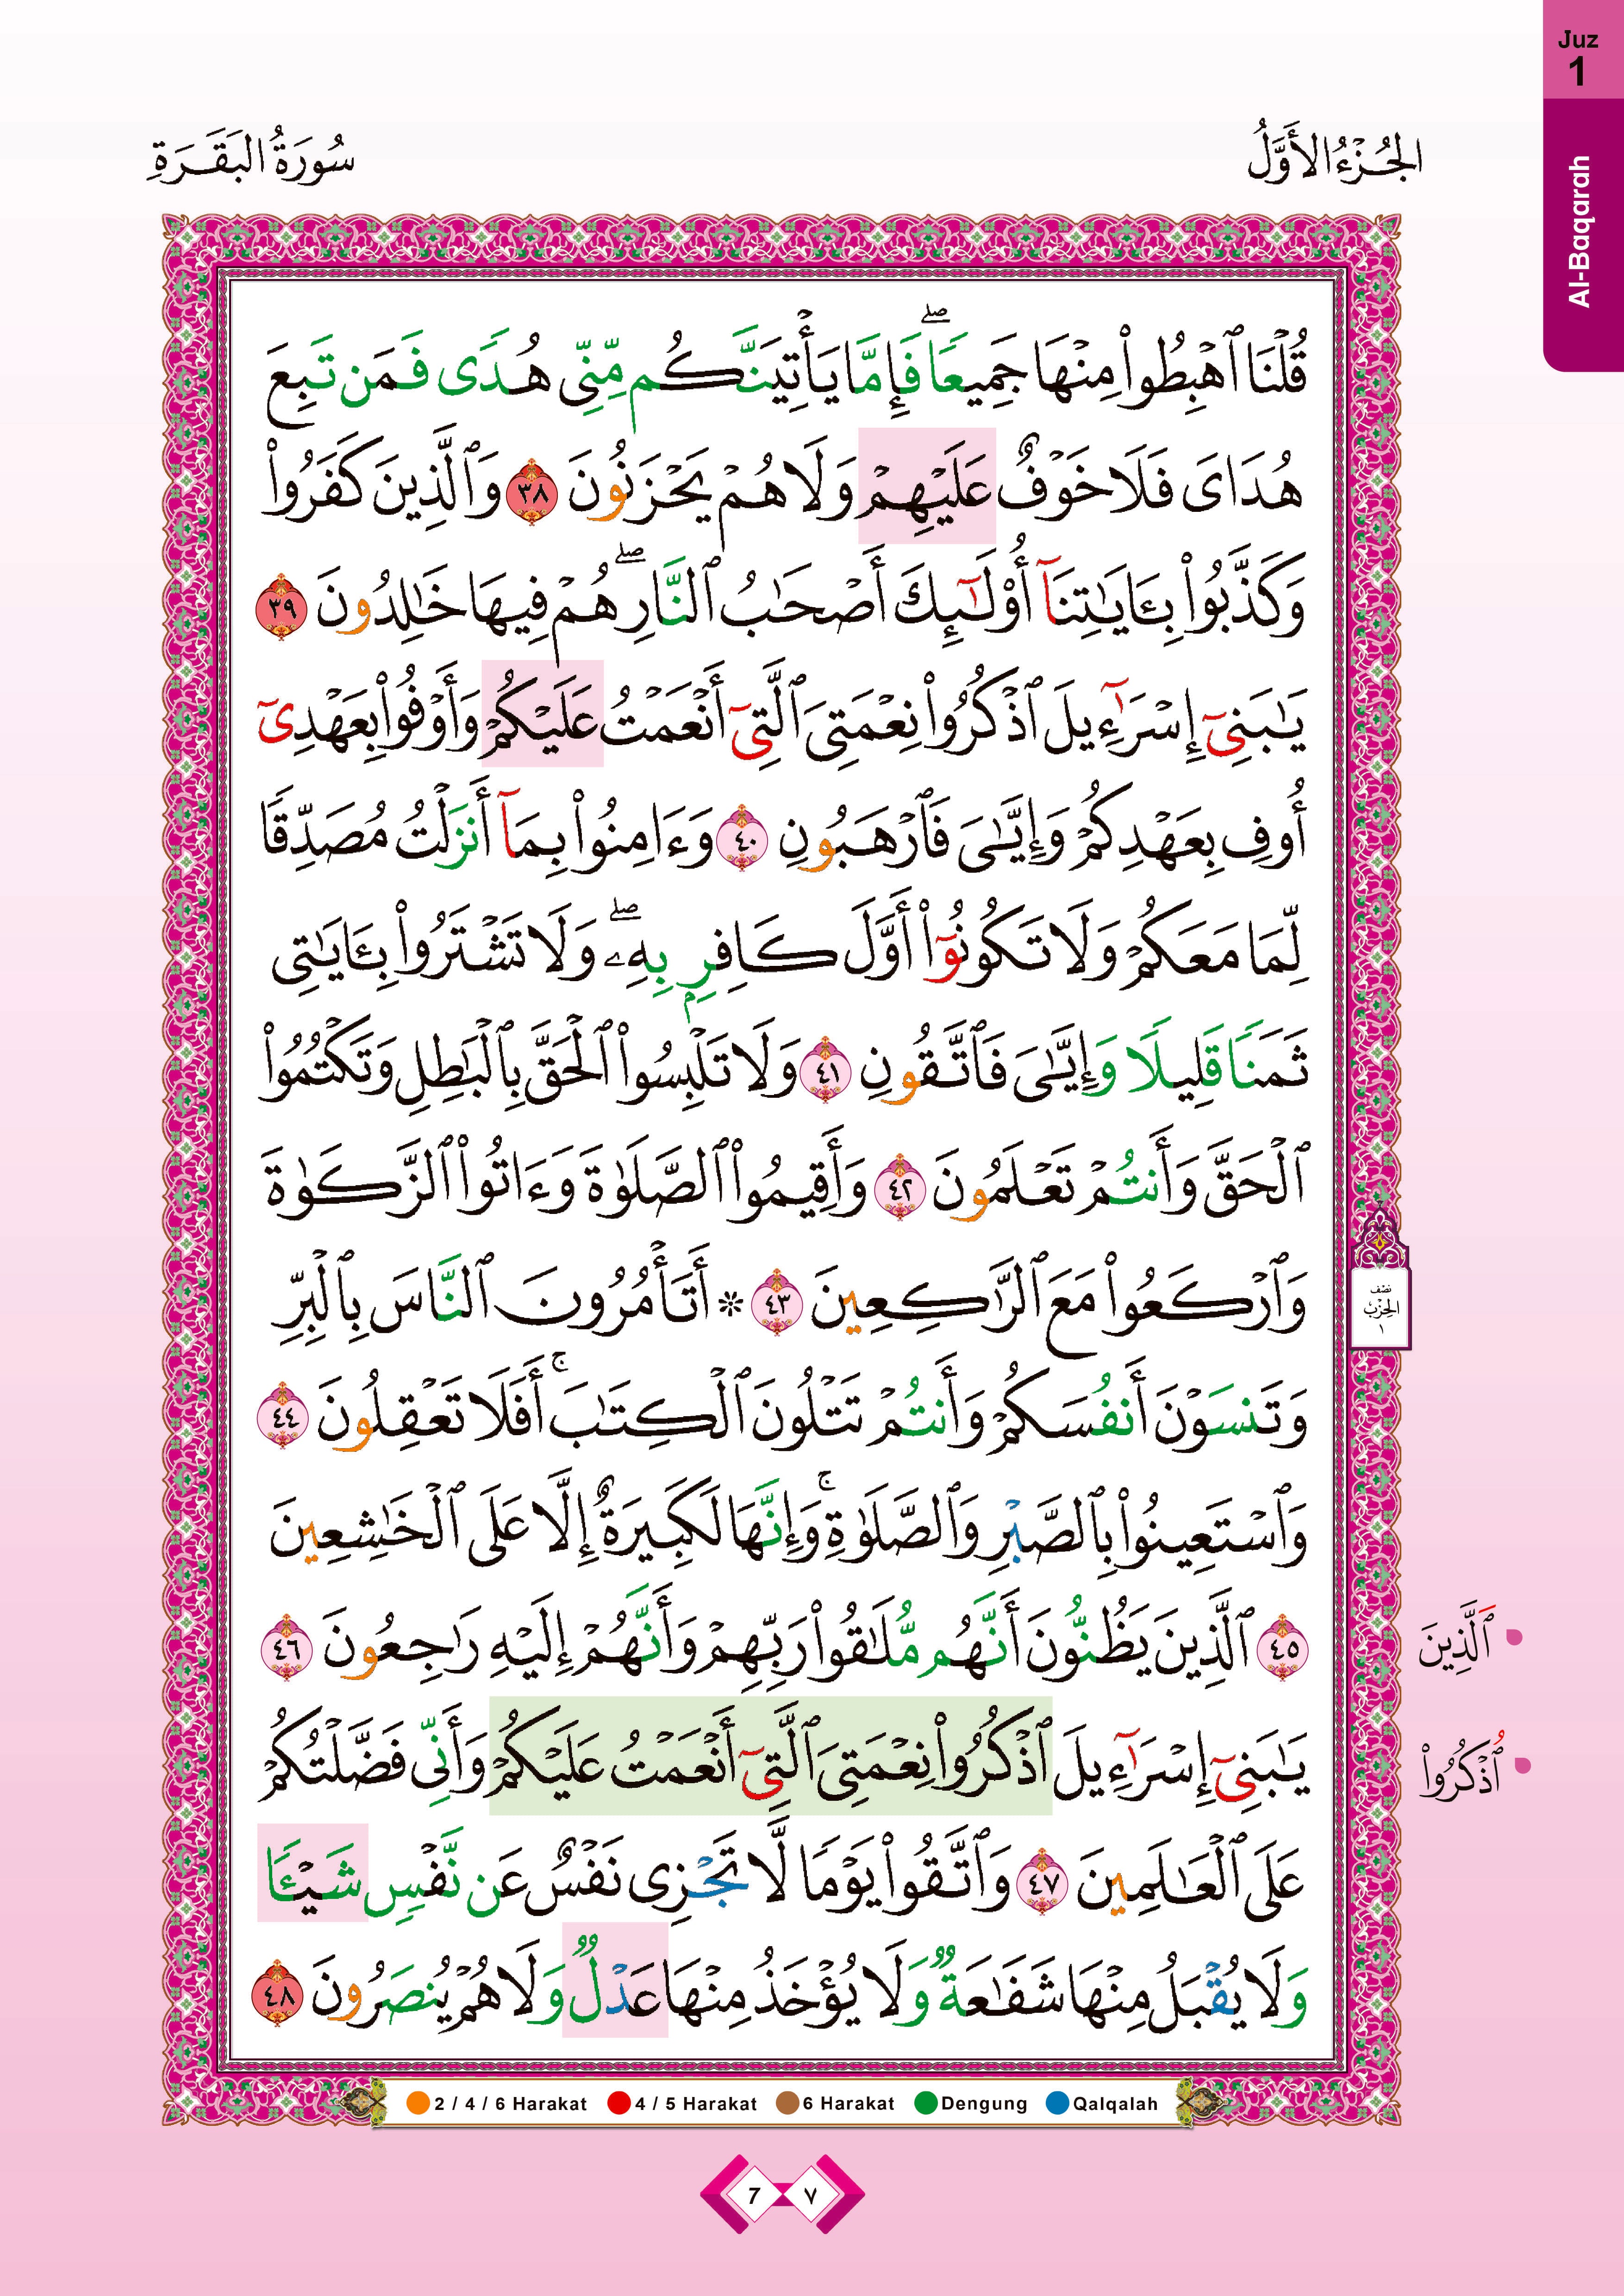 Juz
1
Al-Baqarah
الجُزْءُ الأَوَّلُ
سُورَةُ البَقَرَةِ
قُلْنَا ٱهْبِطُوا۟ مِنْهَا جَمِيعًا ۖ فَإِمَّا يَأْتِيَنَّكُم مِّنِّى هُدًى فَمَن تَبِعَ
هُدَاىَ فَلَا خَوْفٌ عَلَيْهِمْ وَلَا هُمْ يَحْزَنُونَ ٣٨ وَٱلَّذِينَ كَفَرُوا۟
وَكَذَّبُوا۟ بِـَٔايَـٰتِنَآ أُو۟لَـٰٓئِكَ أَصْحَـٰبُ ٱلنَّارِ ۖ هُمْ فِيهَا خَـٰلِدُونَ ٣٩
يَـٰبَنِىٓ إِسْرَٰٓءِيلَ ٱذْكُرُوا۟ نِعْمَتِىَ ٱلَّتِىٓ أَنْعَمْتُ عَلَيْكُمْ وَأَوْفُوا۟ بِعَهْدِىٓ
أُوفِ بِعَهْدِكُمْ وَإِيَّـٰىَ فَٱرْهَبُونِ ٤٠ وَءَامِنُوا۟ بِمَآ أَنزَلْتُ مُصَدِّقًا
لِّمَا مَعَكُمْ وَلَا تَكُونُوٓا۟ أَوَّلَ كَافِرٍۭ بِهِۦ ۖ وَلَا تَشْتَرُوا۟ بِـَٔايَـٰتِى
ثَمَنًا قَلِيلًا وَإِيَّـٰىَ فَٱتَّقُونِ ٤١ وَلَا تَلْبِسُوا۟ ٱلْحَقَّ بِٱلْبَـٰطِلِ وَتَكْتُمُوا۟
ٱلْحَقَّ وَأَنتُمْ تَعْلَمُونَ ٤٢ وَأَقِيمُوا۟ ٱلصَّلَوٰةَ وَءَاتُوا۟ ٱلزَّكَوٰةَ
وَٱرْكَعُوا۟ مَعَ ٱلرَّٰكِعِينَ ٤٣ * أَتَأْمُرُونَ ٱلنَّاسَ بِٱلْبِرِّ
نصف
الحزب
١
وَتَنسَوْنَ أَنفُسَكُمْ وَأَنتُمْ تَتْلُونَ ٱلْكِتَـٰبَ ۚ أَفَلَا تَعْقِلُونَ ٤٤
وَٱسْتَعِينُوا۟ بِٱلصَّبْرِ وَٱلصَّلَوٰةِ ۚ وَإِنَّهَا لَكَبِيرَةٌ إِلَّا عَلَى ٱلْخَـٰشِعِينَ
٤٥ ٱلَّذِينَ يَظُنُّونَ أَنَّهُم مُّلَـٰقُوا۟ رَبِّهِمْ وَأَنَّهُمْ إِلَيْهِ رَٰجِعُونَ ٤٦
اَلَّذِينَ
يَـٰبَنِىٓ إِسْرَٰٓءِيلَ ٱذْكُرُوا۟ نِعْمَتِىَ ٱلَّتِىٓ أَنْعَمْتُ عَلَيْكُمْ وَأَنِّى فَضَّلْتُكُمْ
اُذْكُرُوا۟
عَلَى ٱلْعَـٰلَمِينَ ٤٧ وَٱتَّقُوا۟ يَوْمًا لَّا تَجْزِى نَفْسٌ عَن نَّفْسٍ شَيْـًٔا
وَلَا يُقْبَلُ مِنْهَا شَفَـٰعَةٌ وَلَا يُؤْخَذُ مِنْهَا عَدْلٌ وَلَا هُمْ يُنصَرُونَ ٤٨
2 / 4 / 6 Harakat 4 / 5 Harakat 6 Harakat Dengung Qalqalah
7 ٧